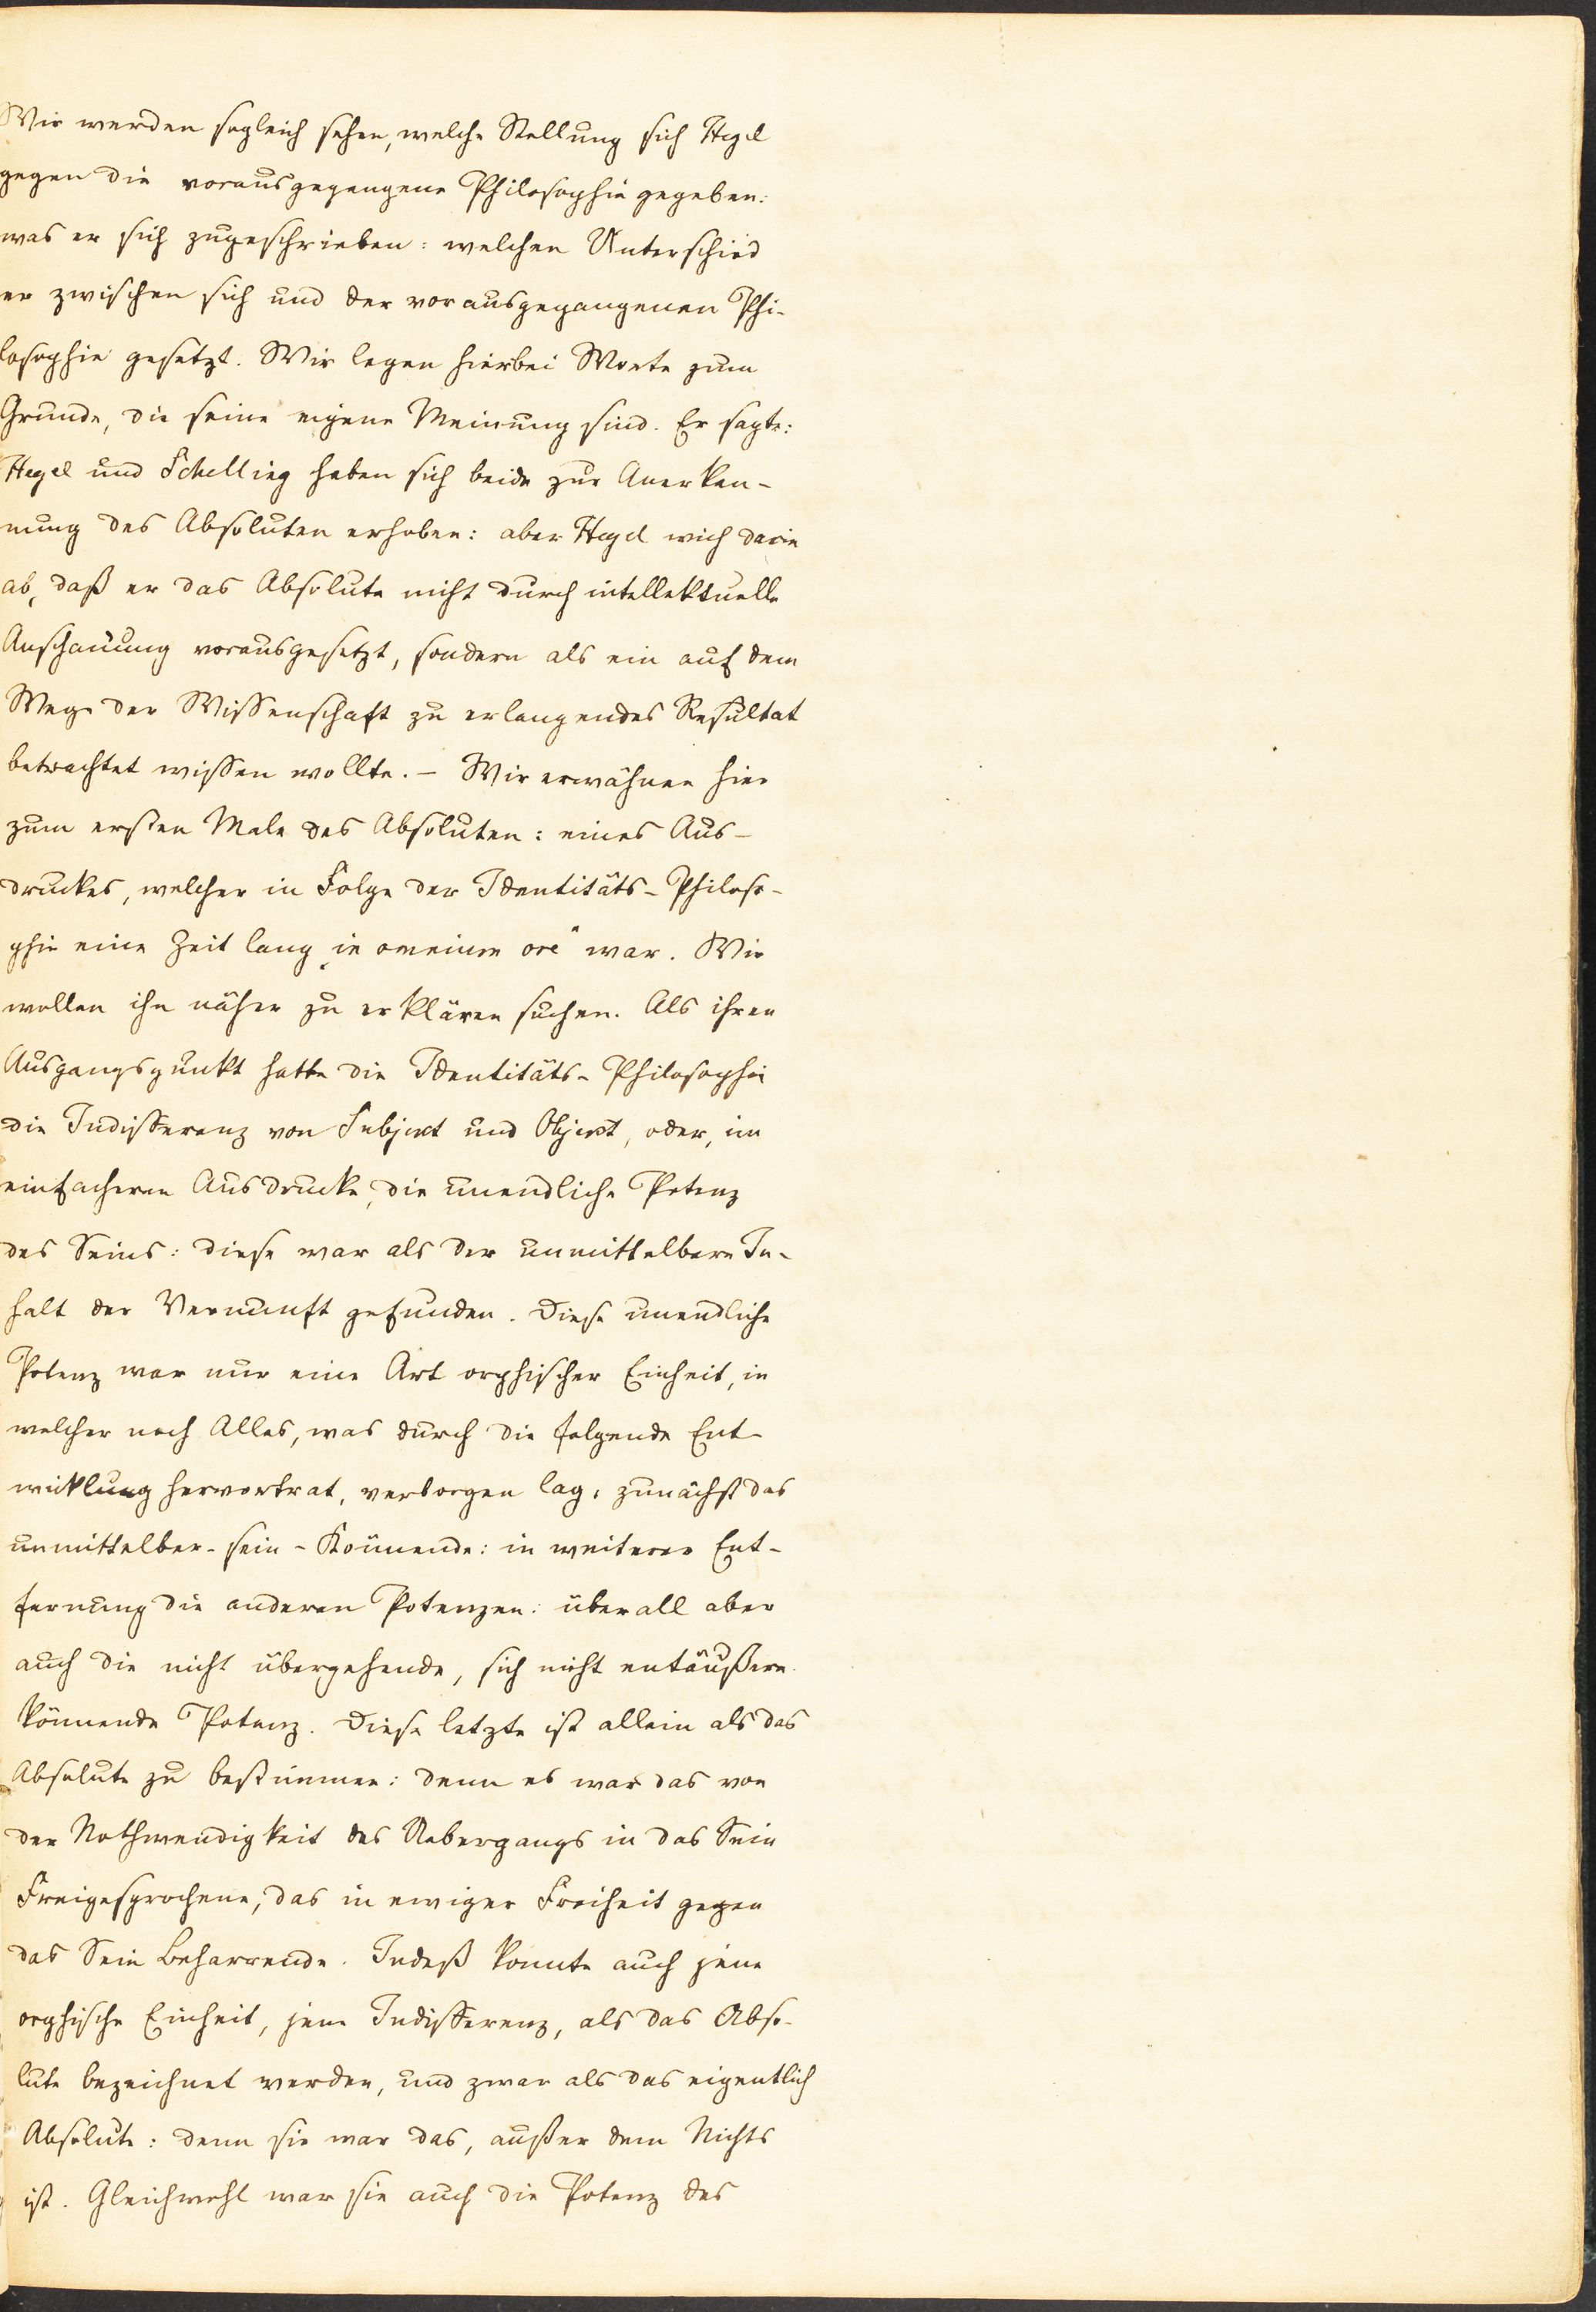 Wir werden sogleich sehen, welche Stellung sich Hegel
gegen die vorausgegangene Philosophie gegeben:
was er sich zugeschrieben: welchen Unterschied
er zwischen sich und der vorausgegangenen Phi-
losophie gesetzt. Wir legen hierbei Worte zum
Grunde, die seine eigene Meinung sind. Er sagte:
Hegel und Schelling haben sich beide zur Anerken-
nung des Absoluten erhoben: aber Hegel wich darin
ab, daß er das Absolute nicht durch intellektuelle
Anschauung vorausgesetzt, sondern als ein auf dem
Wege der Wissenschaft zu erlangendes Resultat
betrachtet wissen wollte. – Wir erwähnen hier
zum ersten Male des Absoluten: eines Aus-
druckes, welcher in Folge der Identitäts-Philoso-
phie eine Zeit lang „in omnium ore“ war. Wir
wollen ihn näher zu erklären suchen. Als ihren
Ausgangspunkt hatte die Identitäts-Philosophie
die Indifferenz von Subject und Object, oder, im
einfacheren Ausdrucke, die unendliche Potenz
des Seins: diese war als der unmittelbare In-
halt der Vernunft gefunden. Diese unendliche
Potenz war nur eine Art orphischer Einheit, in
welcher noch Alles, was durch die folgende Ent-
wicklung hervortrat, verborgen lag: zunächst das
unmittelbar-sein-Könnende: in weiterer Ent-
fernung die anderen Potenzen: überall aber
auch die nicht übergehende, sich nicht entäußern
könnende Potenz. Diese letzte ist allein als das
Absolute zu bestimmen: denn es war das von
der Nothwendigkeit des Uebergangs in das Sein
Freigesprochene, das in ewiger Freiheit gegen
das Sein Beharrende. Indeß konnte auch jene
orphische Einheit, jene Indifferenz, als das Abso-
lute bezeichnet werden, und zwar als das eigentlich
Absolute: denn sie war das, außer dem Nichts
ist. Gleichwohl war sie auch die Potenz des